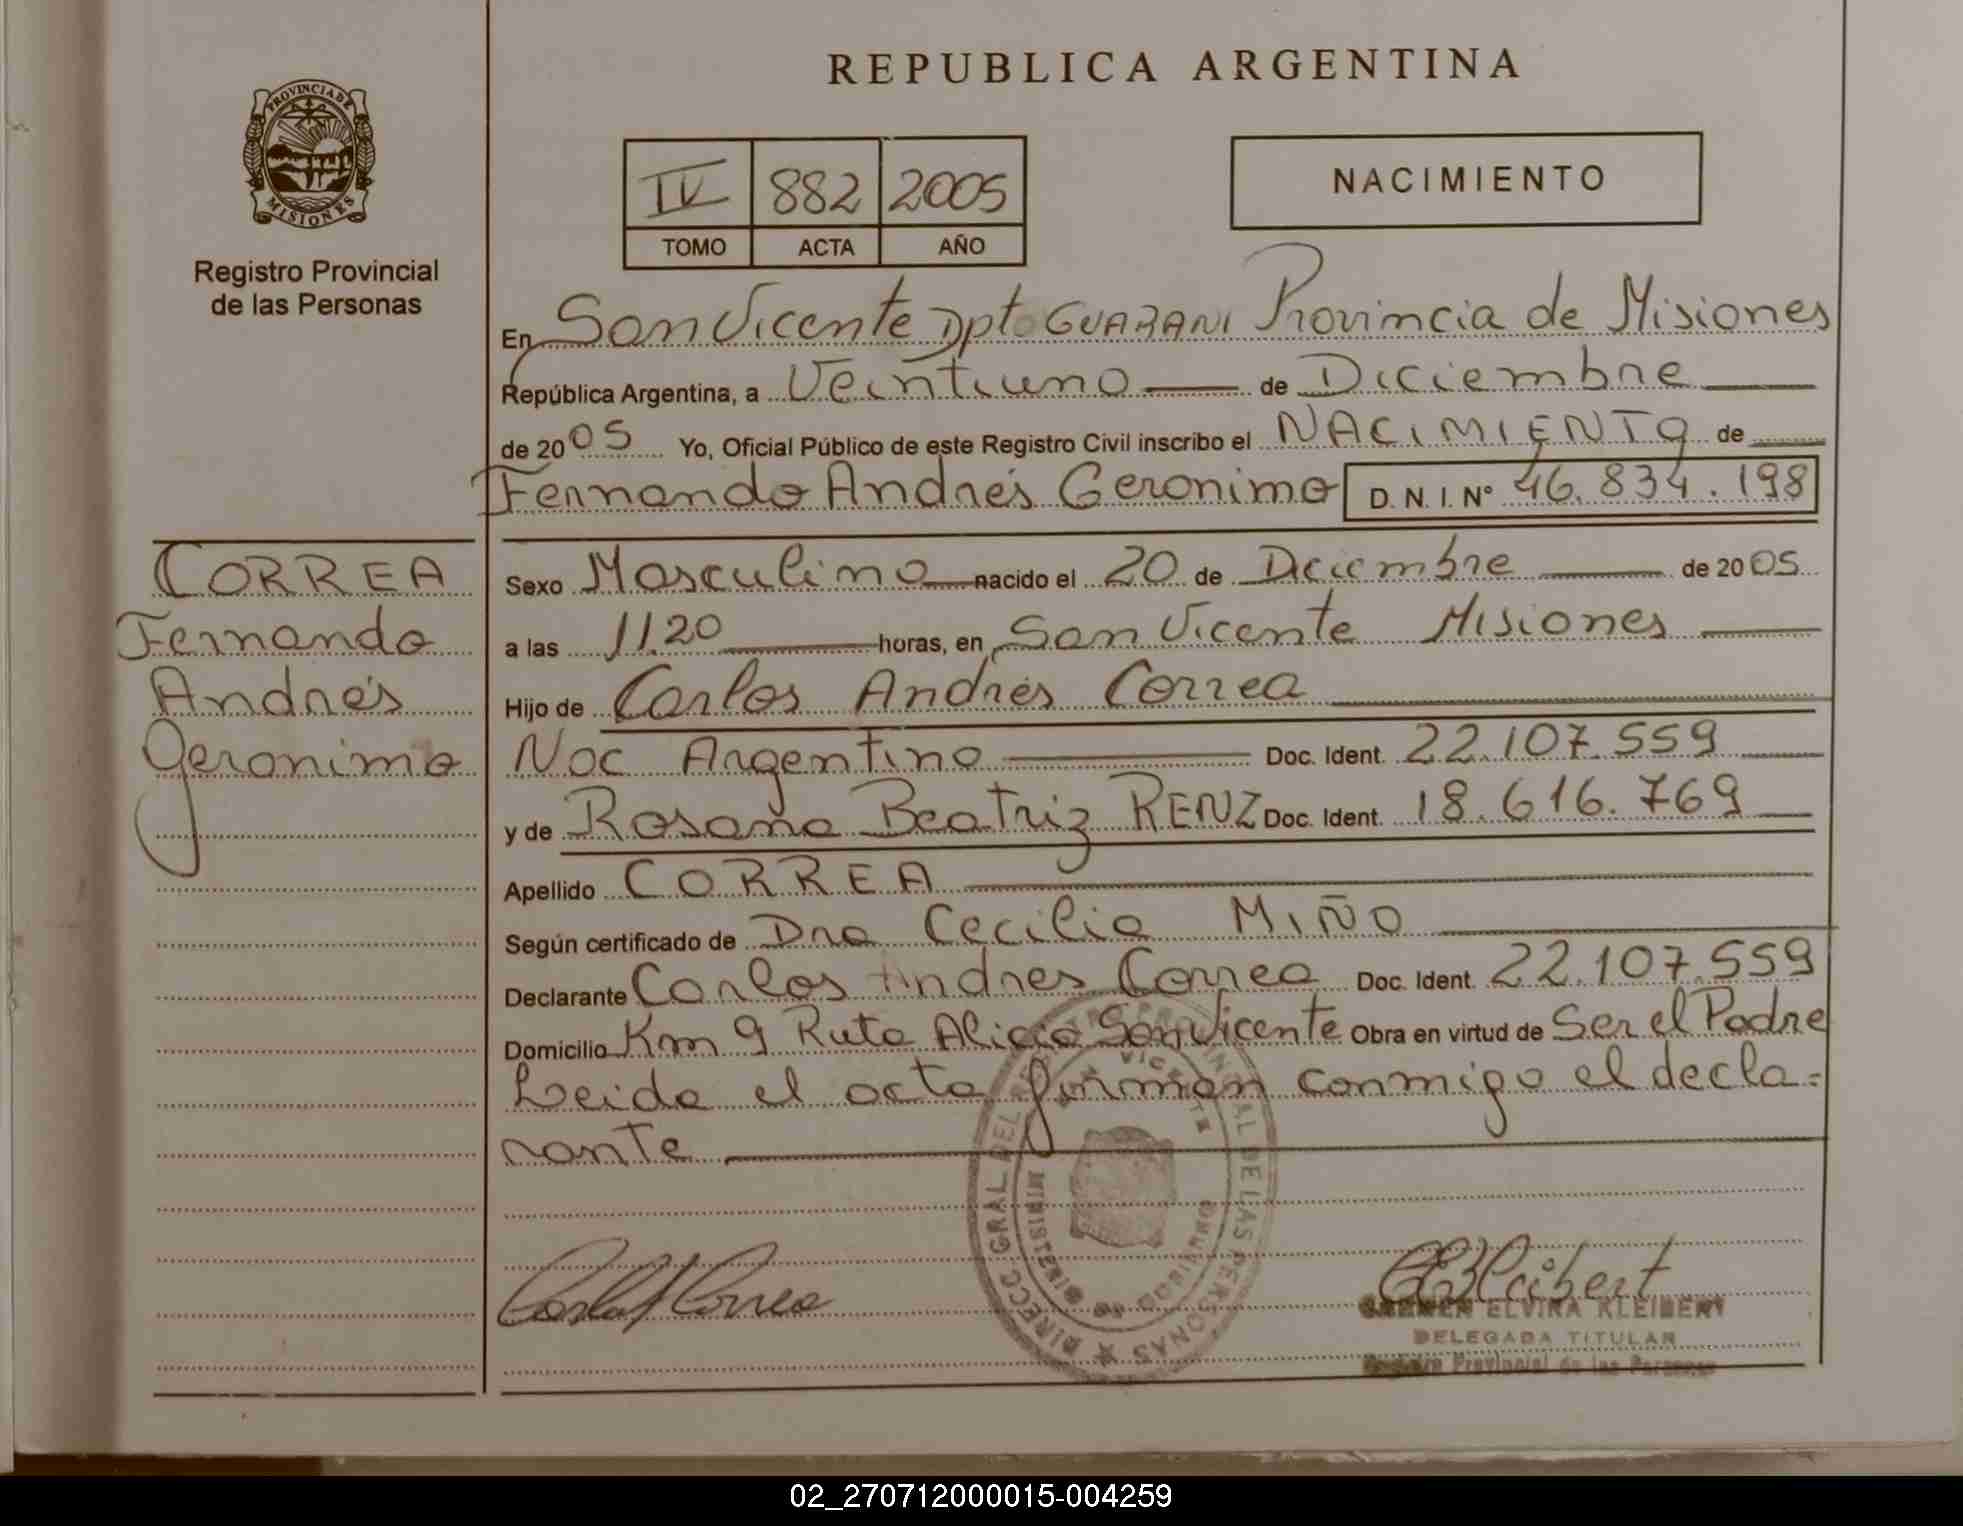 REPUBLICA ARGENTINA
PROVINCIA DE MISIONES
Registro Provincial
de las Personas
IV 882 2005
TOMO ACTA AÑO
NACIMIENTO
En San Vicente Dpto GUARANI Provincia de Misiones
República Argentina, a Veintiuno de Diciembre
de 2005 Yo, Oficial Público de este Registro Civil inscribo el NACIMIENTO de
Fernando Andrés Geronimo D. N. I. N° 46.834.198
CORREA
Fernando
Andrés
Geronimo
Sexo Masculino nacido el 20 de Diciembre de 2005
a las 11.20 horas, en San Vicente Misiones
Hijo de Carlos Andrés Correa
Nac Argentino Doc. Ident. 22.107.559
y de Rosana Beatriz RENZ Doc. Ident. 18.616.769
Apellido CORREA
Según certificado de Dra Cecilia MIÑO
Declarante Carlos Andres Correa Doc. Ident. 22.107.559
Domicilio Km 9 Ruta Alicia San Vicente Obra en virtud de Ser el Padre
Leida el acta firman conmigo el decla=
rante
DIREC. GRAL. DEL REGISTRO PROVINCIAL DE LAS PERSONAS
SAN VICENTE
MINISTERIO DE GOBIERNO
Carlos A Correa
CEKleibert
CARMEN ELVIRA KLEIBERT
DELEGADA TITULAR
Registro Provincial de las Personas
02_270712000015-004259